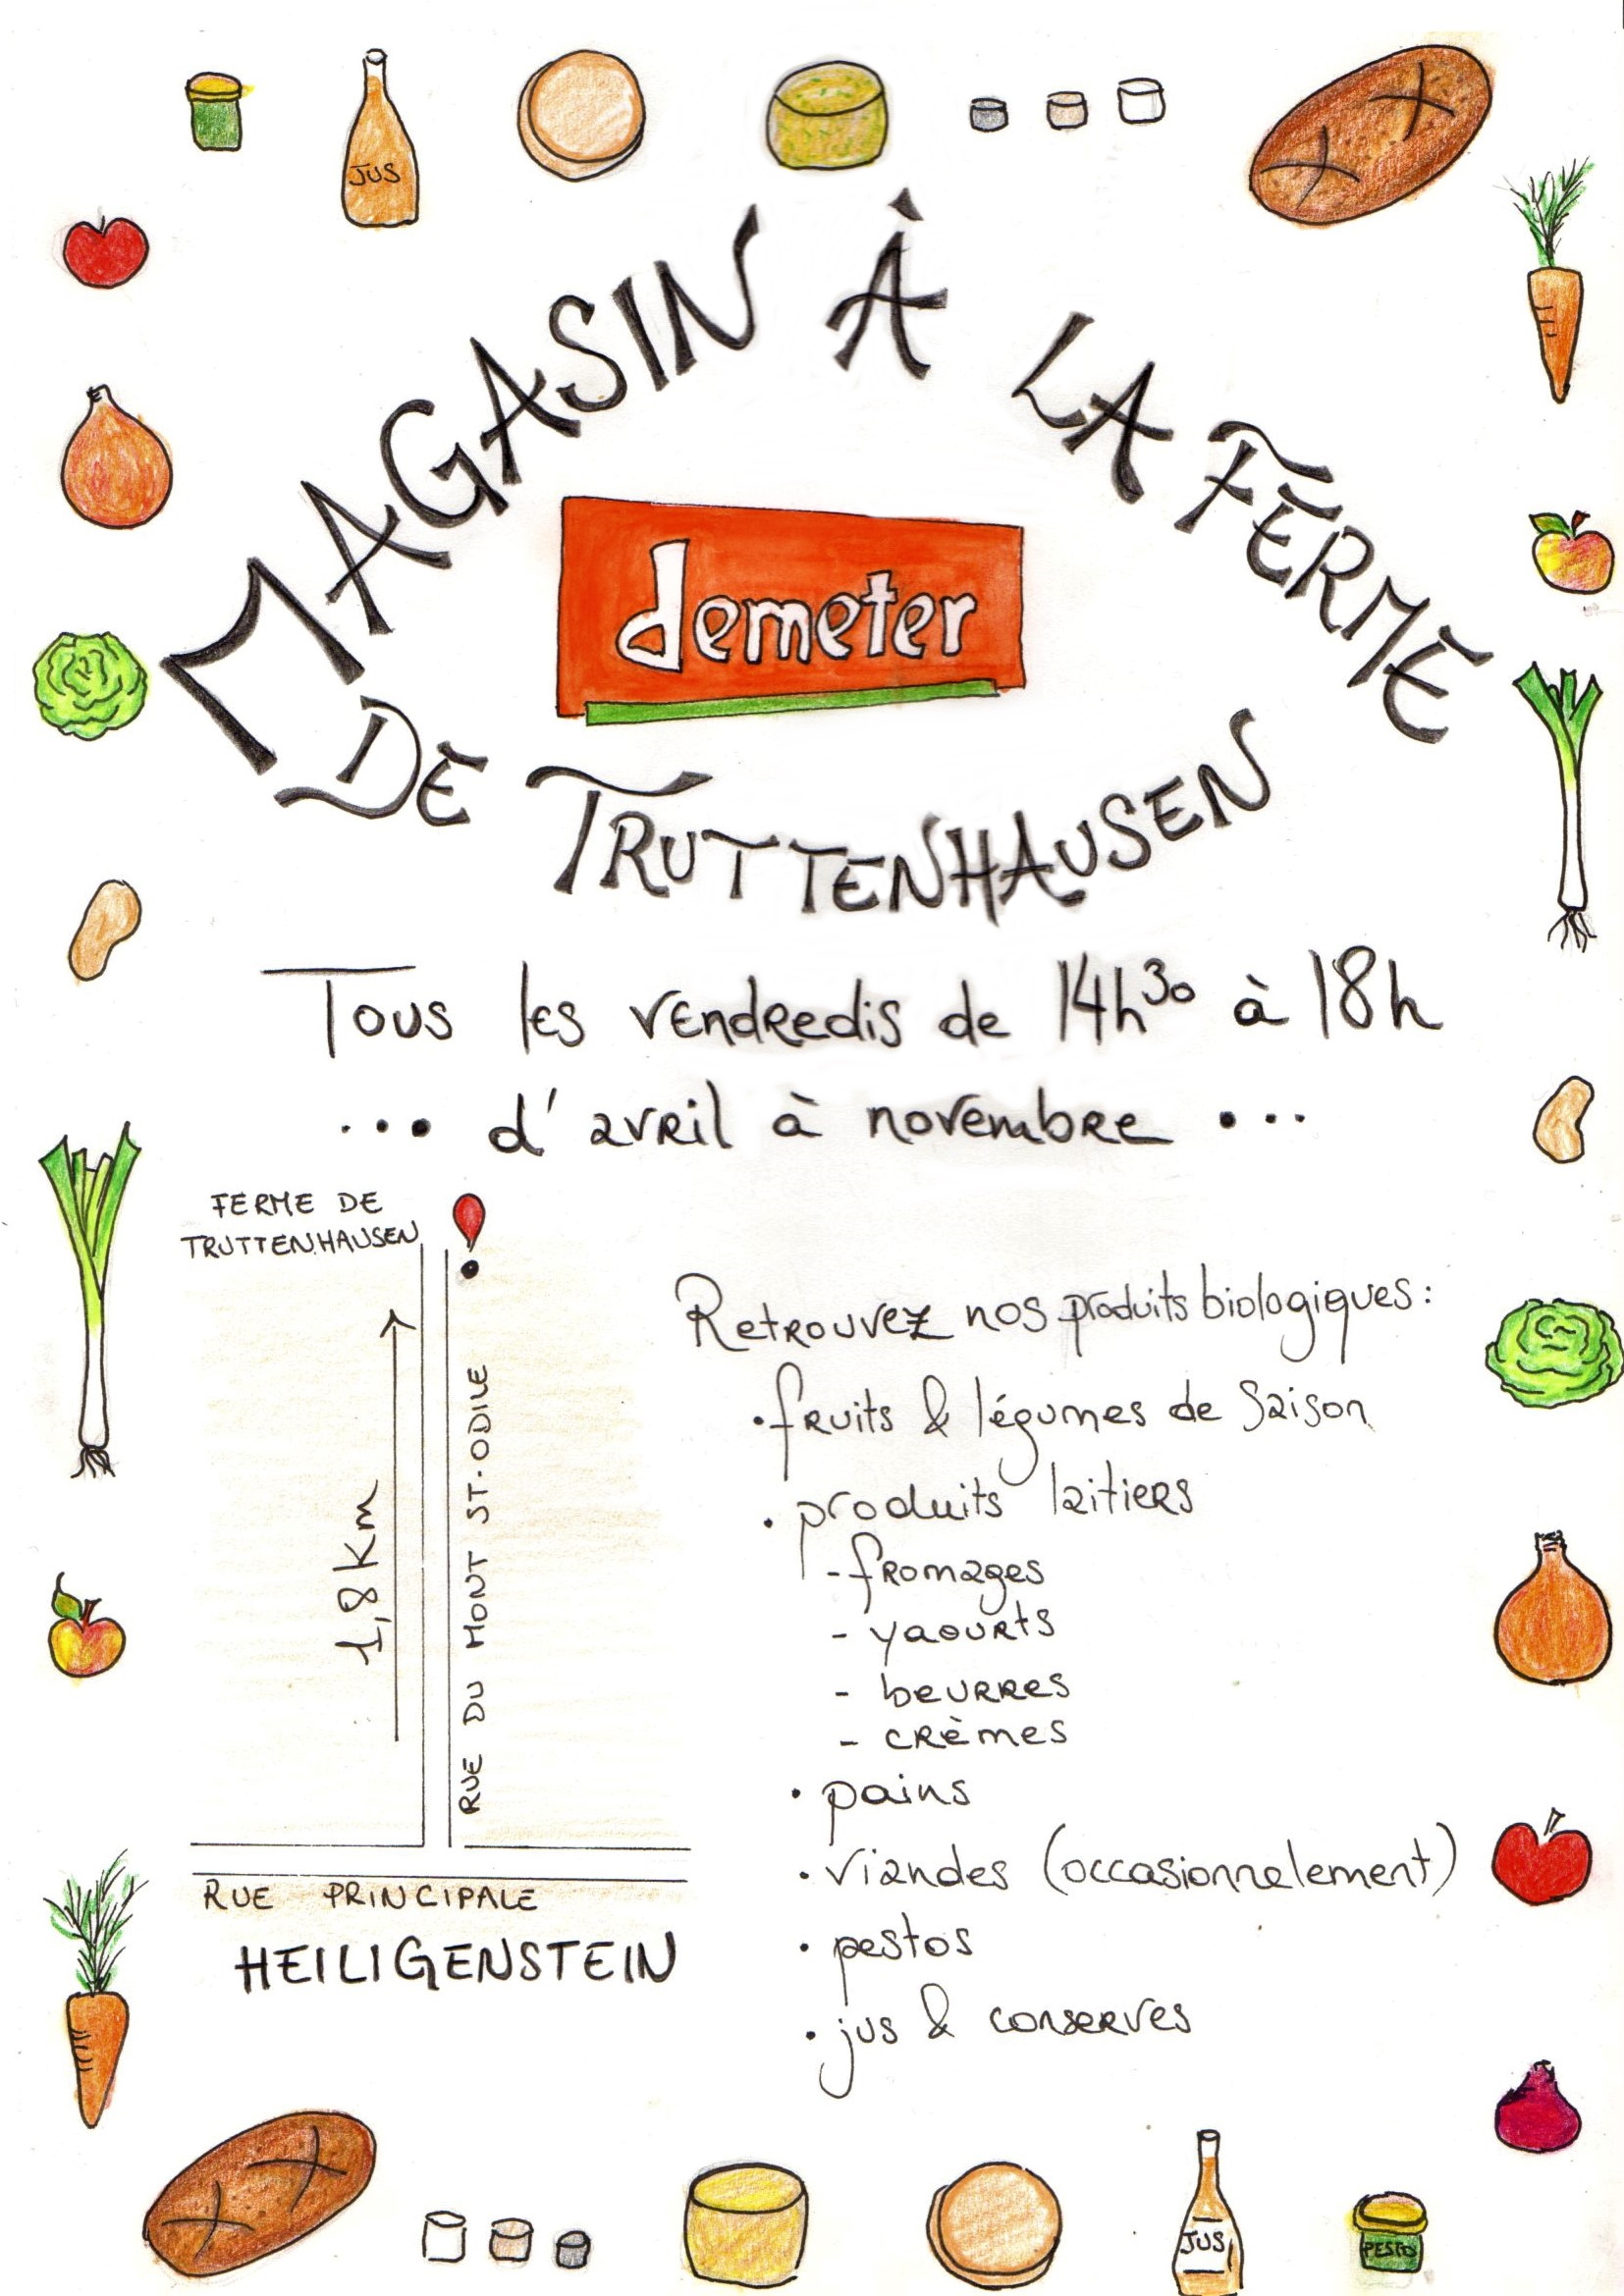 JUS
MAGASIN À LA FERME
demeter
DE TRUTTENHAUSEN
Tous les vendredis de 14h30 à 18h
... d'avril à novembre ...
FERME DE
TRUTTENHAUSEN
1,8 km
RUE DU MONT ST-ODILE
RUE PRINCIPALE
HEILIGENSTEIN
Retrouvez nos produits biologiques:
• fruits & légumes de saison
• produits laitiers
- fromages
- yaourts
- beurres
- crèmes
• pains
• viandes (occasionnelement)
• pestos
• jus & conserves
JUS
PESTO